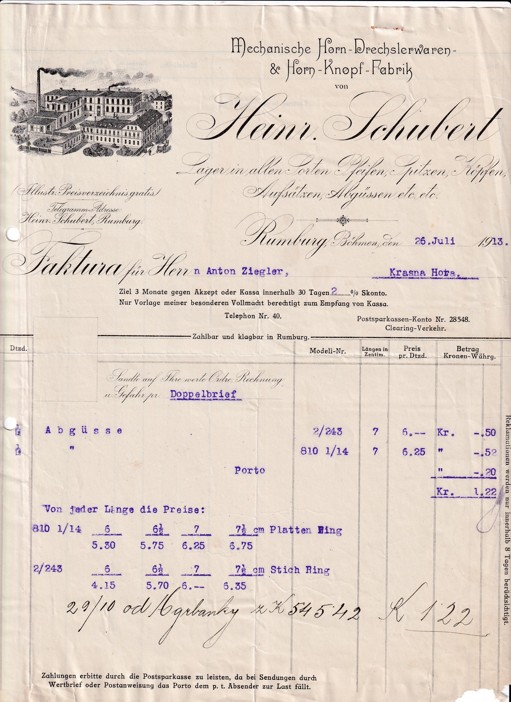 Mechanische Horn-Drechslerwaren-
& Horn-Knopf-Fabrik
von
Heinr. Schubert
Lager in allen Sorten Pfeifen, Spitzen, Köpfen,
Aufsätzen, Abgüssen etc. etc.
Illustr. Preisverzeichnis gratis
Telegramm-Adresse
Heinr. Schubert, Rumburg.
Rumburg, Böhmen, den 26.Juli 1913.
Faktura für Herrn Anton Ziegler, Krasna Hora.
Ziel 3 Monate gegen Akzept oder Kassa innerhalb 30 Tagen 2 % Skonto.
Nur Vorlage meiner besonderen Vollmacht berechtigt zum Empfang von Kassa.
Telephon Nr. 40.
Postsparkassen-Konto Nr. 28548.
Clearing-Verkehr.
Zahlbar und klagbar in Rumburg.
Dtzd. Modell-Nr. Längen in Zentim. Preis pr. Dtzd. Betrag Kronen-Währg.
Sandte auf Ihre werte Ordre, Rechnung
u. Gefahr pr. Doppelbrief
Abgüsse 2/243 7 6.-- Kr. -.50
" 810 1/14 7 6.25 " -.52
Porto " -.20
Kr. 1.22
Von jeder Länge die Preise:
810 1/14 6 6½ 7 7½ cm Platten Ring
5.30 5.75 6.25 6.75
2/243 6 6½ 7 7½ cm Stich Ring
4.15 5.70 6.-- 6.35
29/10 od K 54542 K 1 22
Zahlungen erbitte durch die Postsparkasse zu leisten, da bei Sendungen durch
Wertbrief oder Postanweisung das Porto dem p. t. Absender zur Last fällt.
Reklamationen werden nur innerhalb 8 Tagen berücksichtigt.